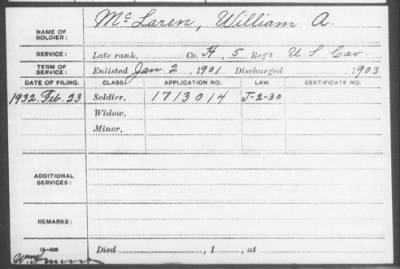 NAME OF SOLDIER: McLaren, William A.
SERVICE: Late rank, Co. H, 5 Regt U.S. Cav.
TERM OF SERVICE: Enlisted Jan. 2, 1901 Discharged , 1903
DATE OF FILING. CLASS. APPLICATION NO. LAW. CERTIFICATE NO.
1932. Feb. 23 Soldier, 1713014 J-2-30
Widow,
Minor,
ADDITIONAL SERVICES:
REMARKS:
Died , 1 , at